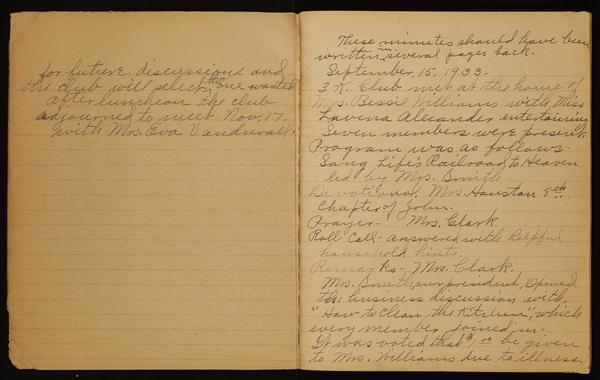 for future discussions and
the club will select the one wanted
after luncheon the club
adjourned to meet Nov. 17.
with Mrs. Eva Vanduvall.
These minutes should have been
written on several pages back.
September, 15, 1933.
3 K. Club met at the house of
Mrs. Bessie Williams with Miss
Lavena Alexander entertaining
Seven members were present.
Program was as follows.
Song Life's Railroad to Heaven
led by Mrs. Smith.
Devotional, Mrs. Houston 8th
Chapter of John.
Prayer- Mrs. Clark
Roll Call- answered with helpful
household hints.
Remarks- Mrs. Clark.
Mrs. Smith, our president, opened
the business discussion with,
"How to Clean, the Kitchen", which
every member joined in.
It was voted that $1.00 be given
to Mrs. Williams due to illness